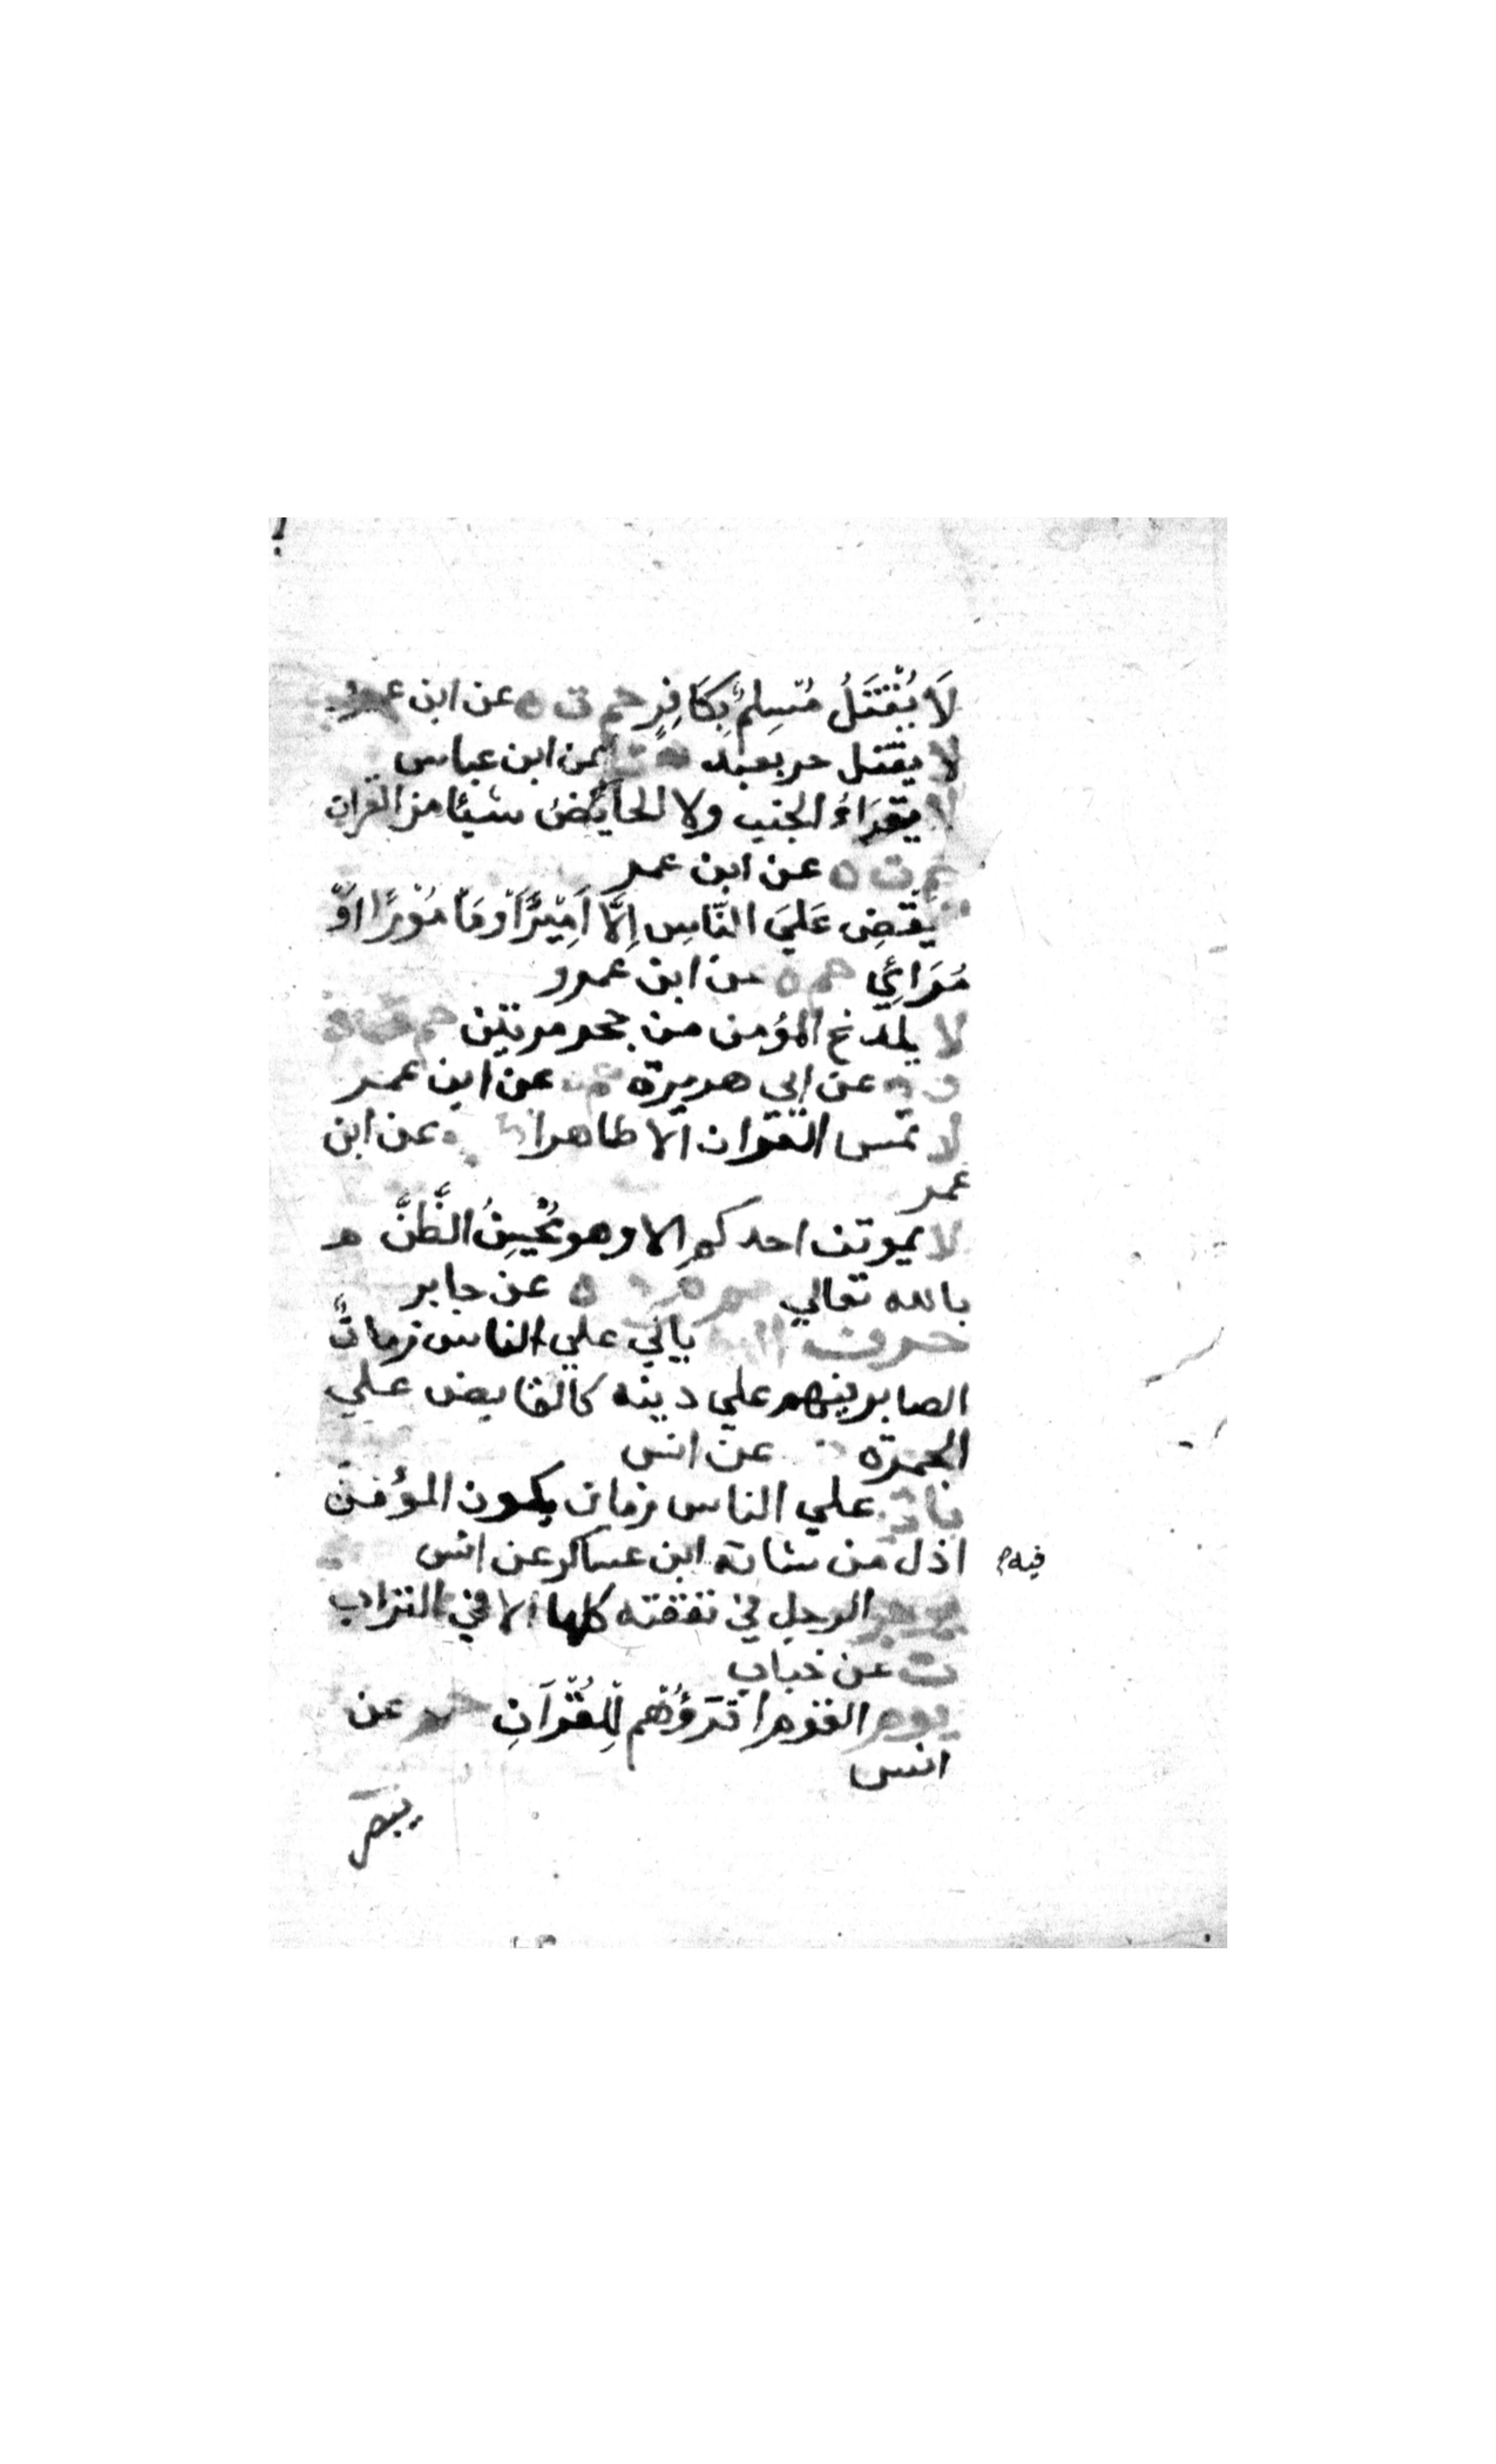 لَا يُقْتَلُ مُسِلمٌ بِكَافِرٍ حم ت ه عن ابن عمرو
لا يقتل حر بعبد عن ابن عباس
لا يقرَاءُ الجنب ولا الحائِضُ شيئا من القران
حم ت ه عن ابن عمر
يَقُصّ عَليَ النَّاسِ إِلَّا اَمِيْرًا اَوْ مَاْمُوْرًا اوْ
مُرَائي حم ه عن ابن عمرو
لا يلدغ المؤمن من جحر مرتين حم ق
د ه عن ابي هريرة عن ابن عمر
لا تمس القران الا طاهرا عن ابن
عمر
لا يموتن احدكم الا وهو يُحْسِنُ الظَّنَّ
بالله تعالي حم م ه عن جابر
حرف ياتي علي الناس زمانٌ
الصابر فيهم علي دينه كالقابض علي
الجمرة عن انس
ياتي علي الناس زمان يكون المؤمن
اذل من شاته ابن عساكر عن انس
فيه
يوجر الرجل في نفقته كلها الا في التراب
ت عن خباب
يوم القوم اقرَؤُهُم لِلْقُرْآنِ حم عن
انس
يبصر